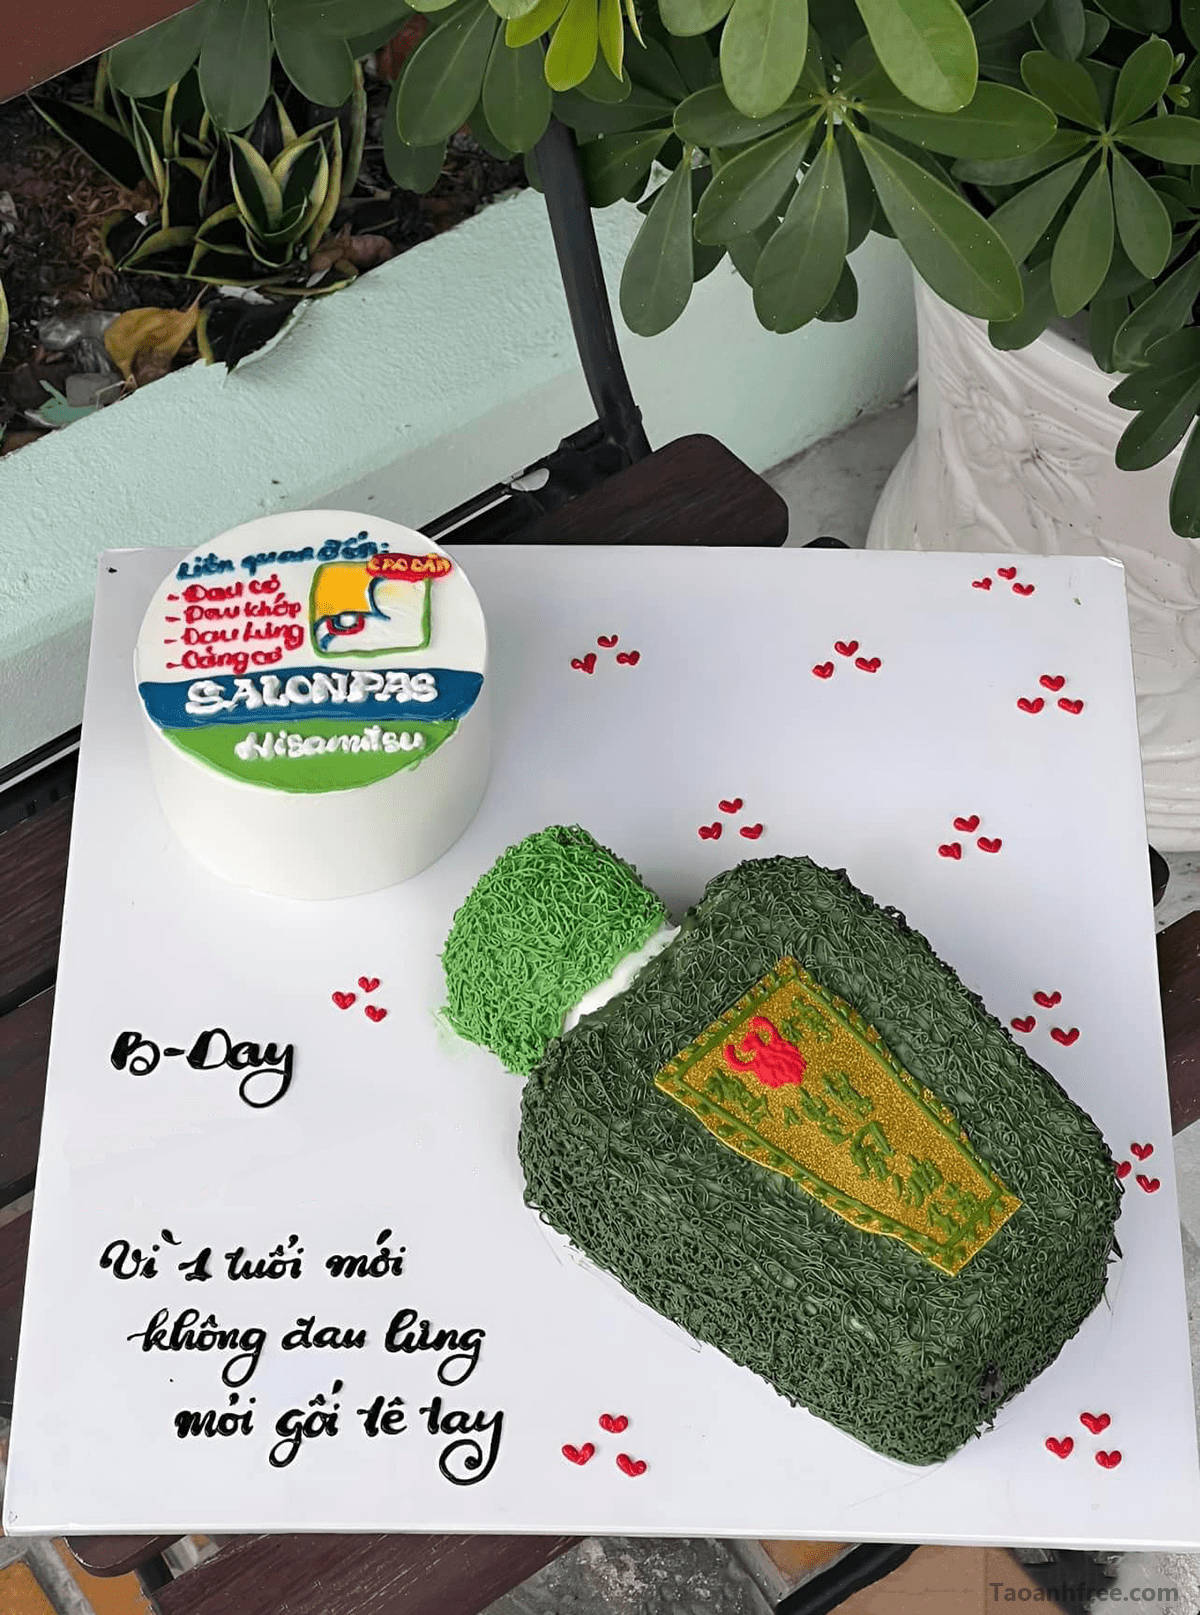 Liên quan đến:
CAO DÁN
- Đau cơ
- Đau khớp
- Đau lưng
- Căng cơ
SALONPAS
Hisamitsu
B-Day
Vì 1 tuổi mới
không đau lưng
mỏi gối tê tay
Taoanhfree.com